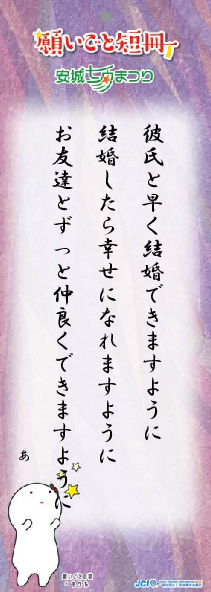 願いごと短冊
安城七夕まつり
彼氏と早く結婚できますように
結婚したら幸せになれますように
お友達とずっと仲良くできますように
あ
JCI